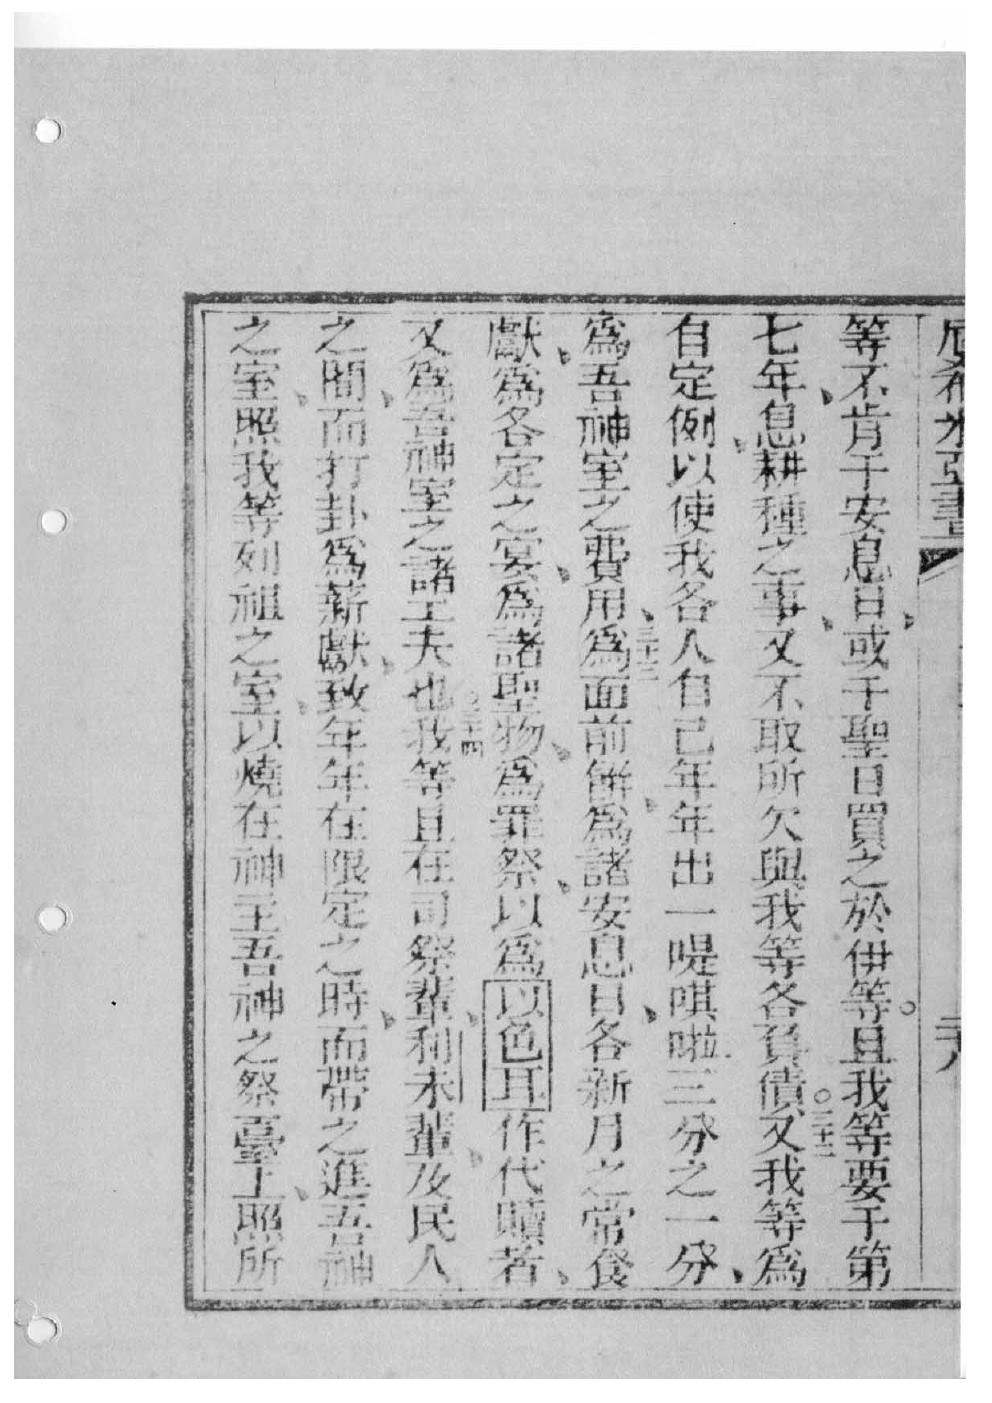 尼希米亞書
等不肯于安息日、或于聖日買之於伊等。且我等要于第
七年、息耕種之事、又不取所欠與我等各負債。○三十二又我等為
自定例、以使我各人自己年年出一㖷㖷啦三分之一分、
為吾神室之費用、三十三為面前餅、為諸安息日、各新月之常食
獻、為各定之宴、為諸聖物、為罪祭、以為以色耳作代贖者、
又為吾神室之諸工夫也。三十四我等且在司祭輩、利未輩、及民人
之間、而打卦為薪獻、致年年在限定之時、而帶之進吾神
之室、照我等列祖之室、以燒在神主吾神之祭臺上、照所